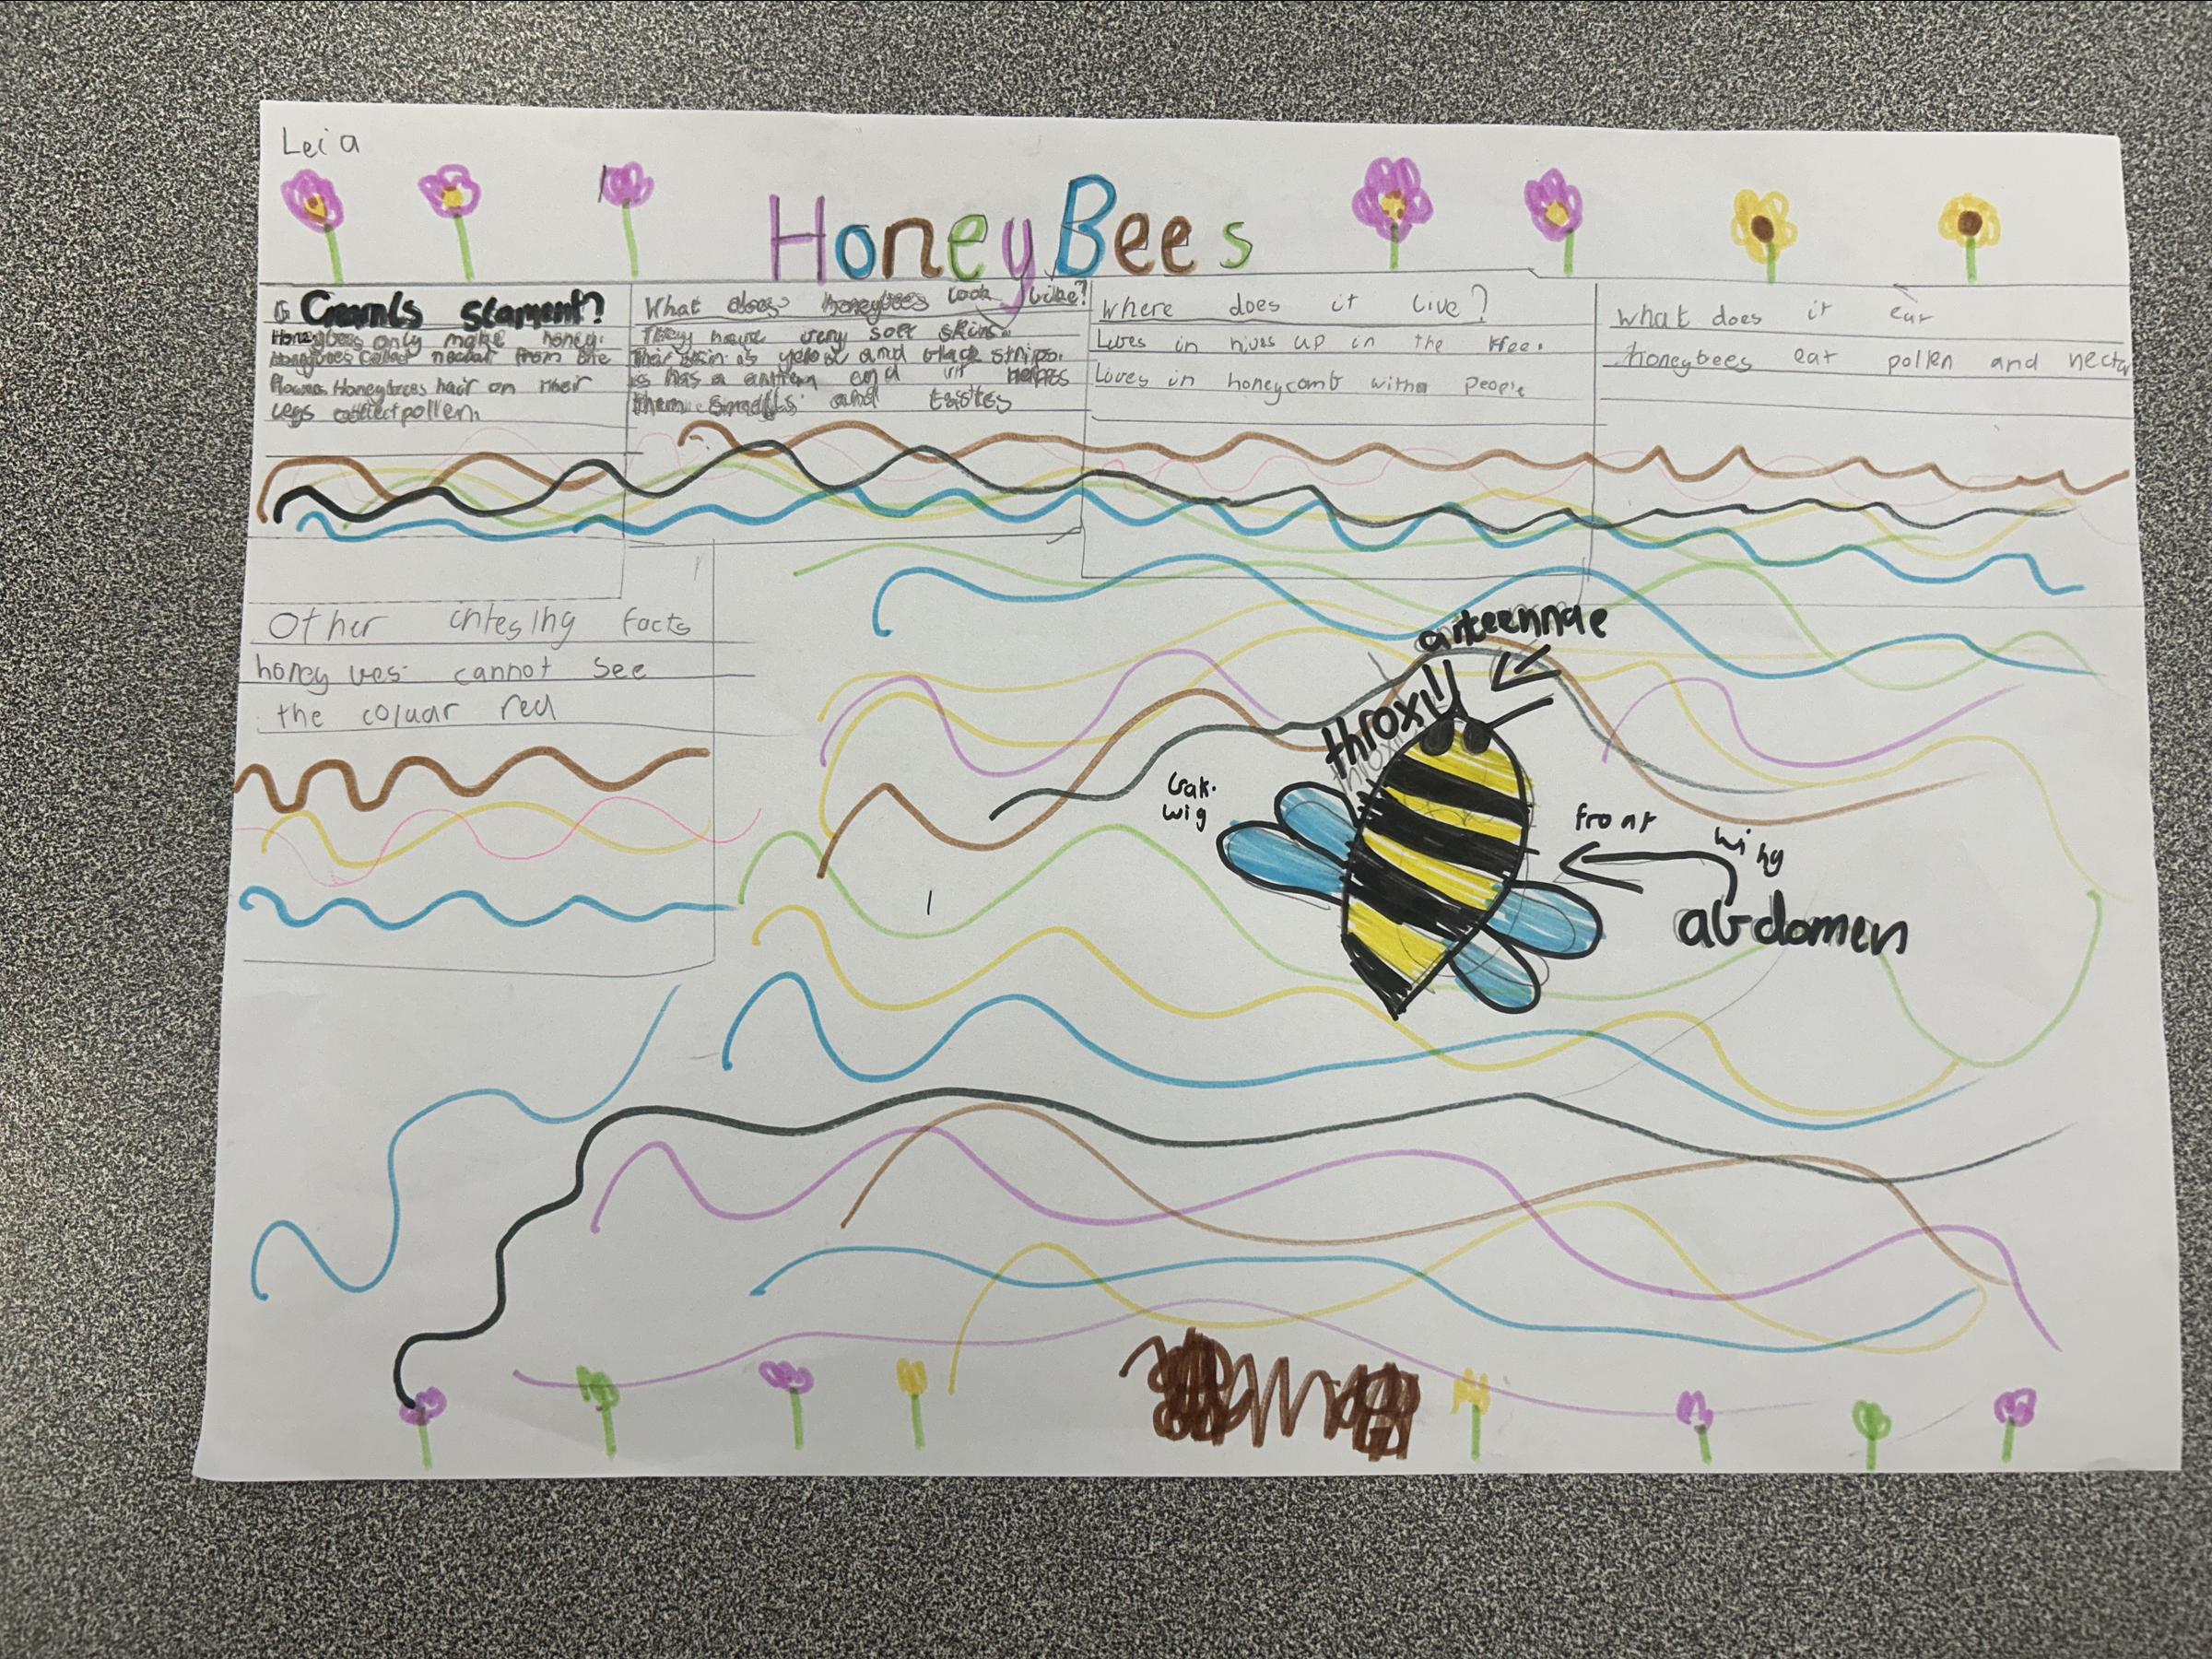 Leia
HoneyBees
G Genrnls stament?
Honeybees only make honey.
Honeybees collat nectar from the
flowes Honeybees hair on their
legs collect pollen
What does honeybees look like?
They have very soft skins
Their skin is yelow and black strips.
is has a antten and it helps
them smells and tastes
Where does it live?
Lives in hives up in the tree.
Loves in honeycomb with people
What does it eat
honeybees eat pollen and necta
Other intesing facts
honey bes cannot see
the coluar red
anteennae
throx
bak.
wig
front
wing
abdomen